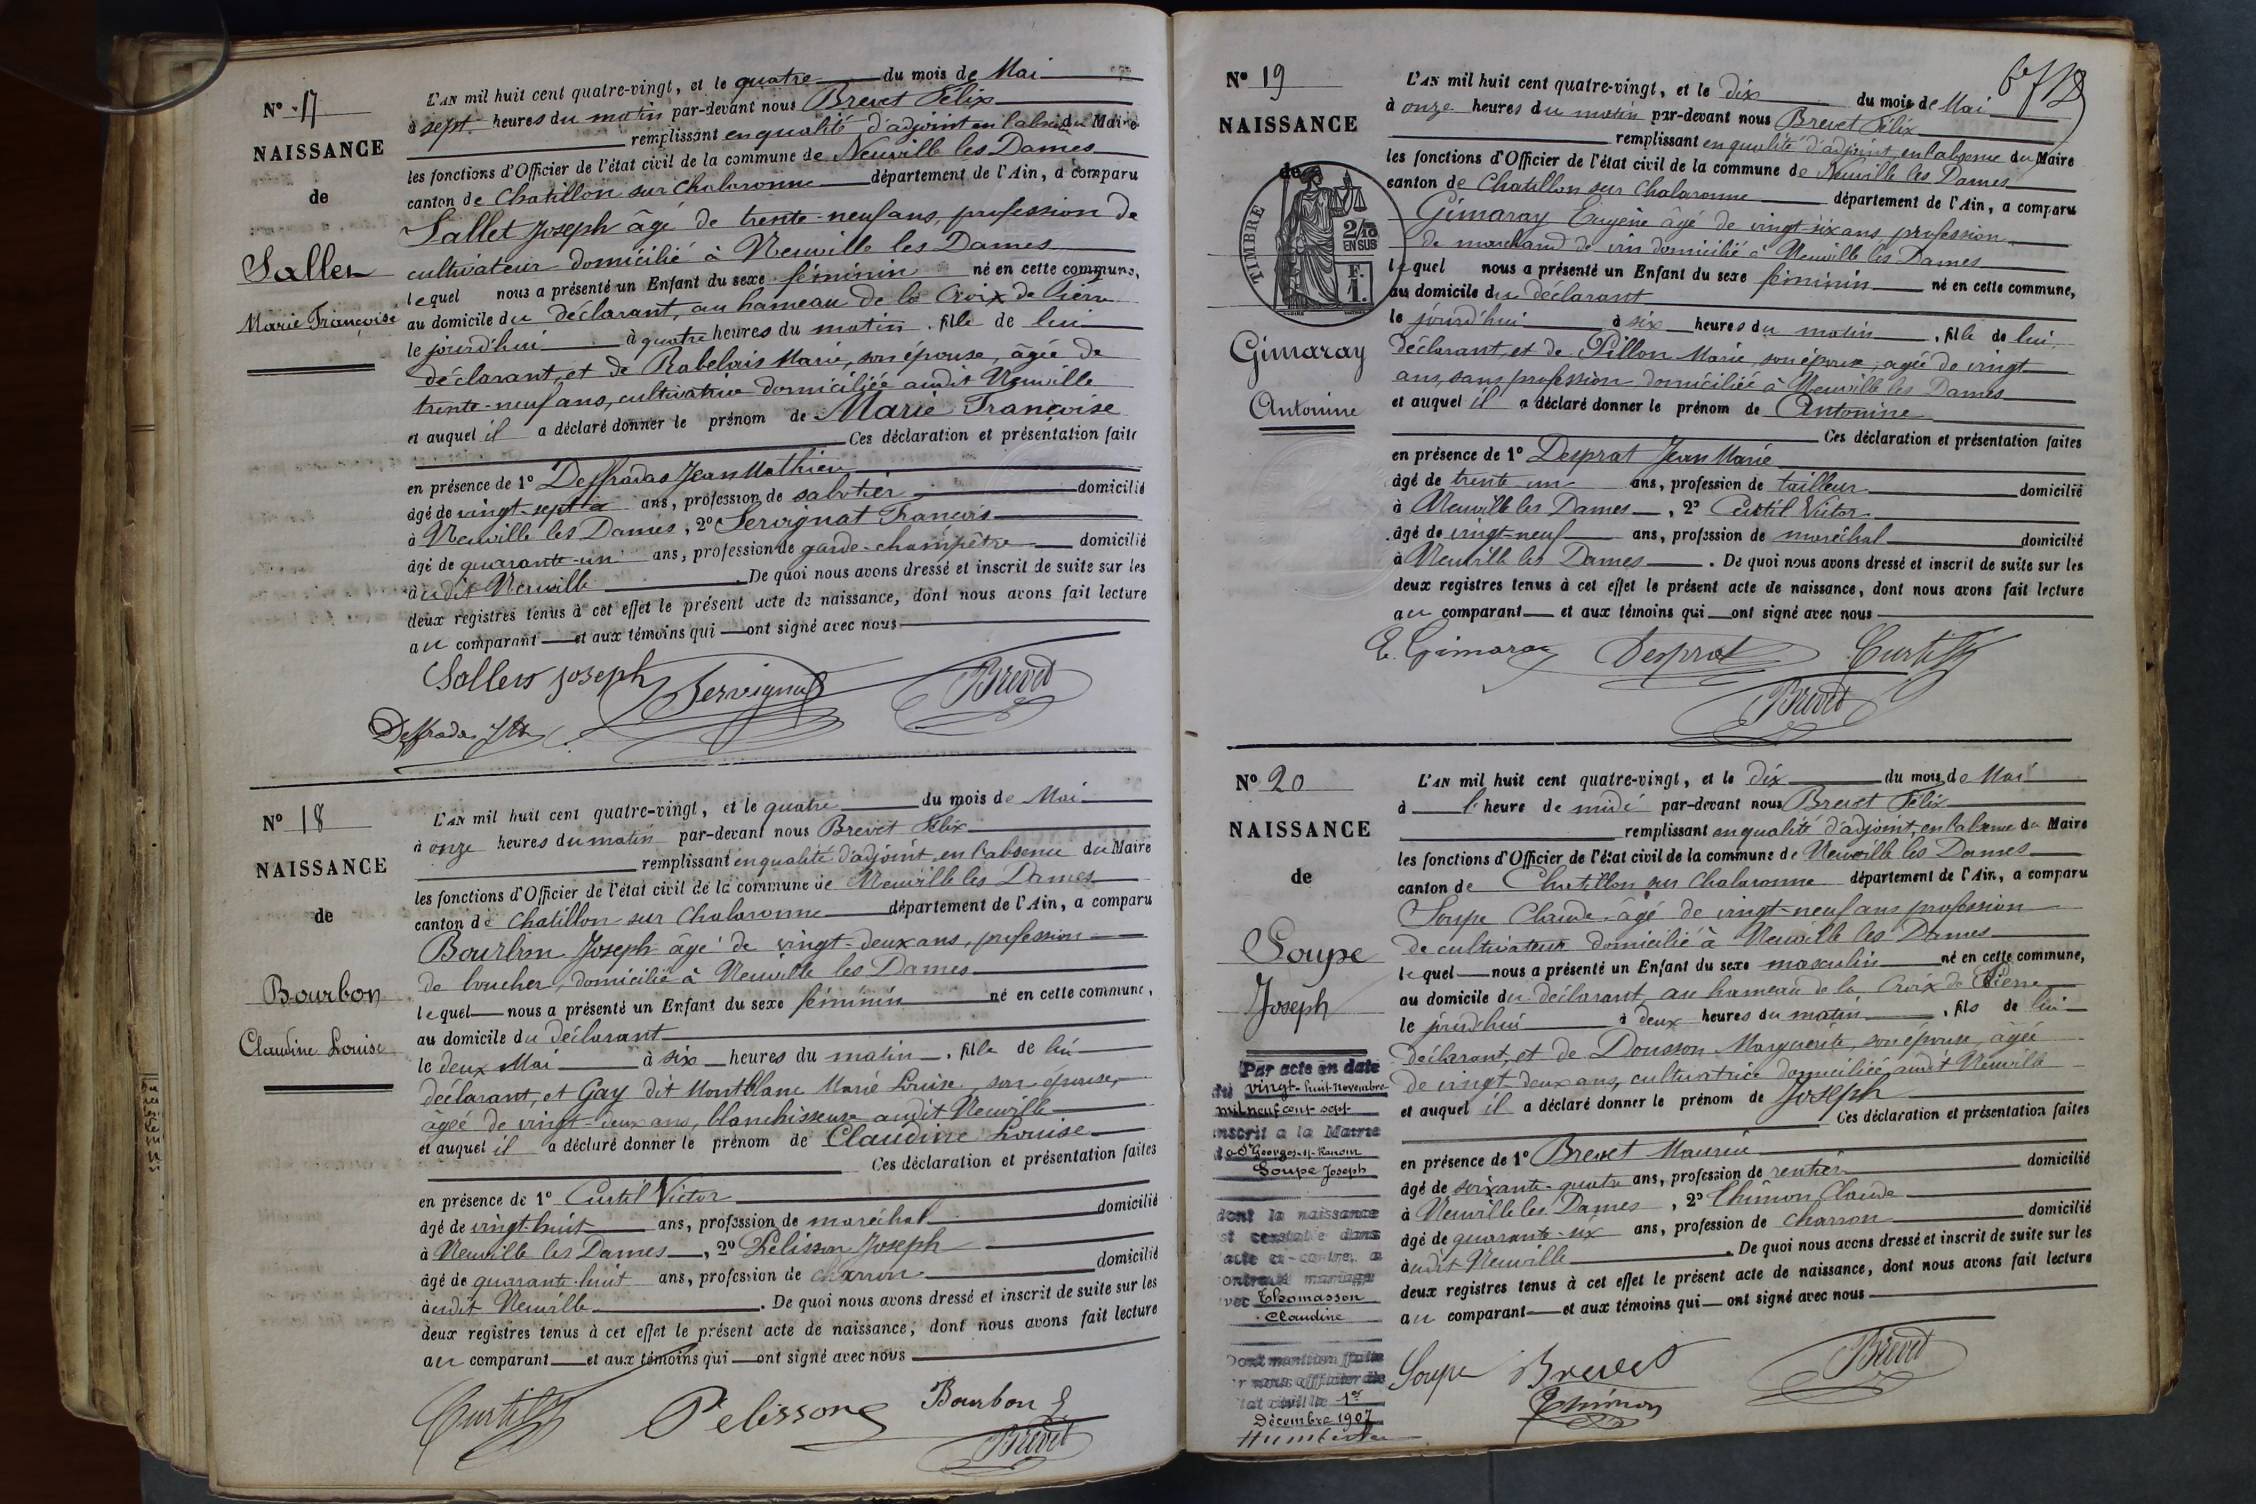 N° 17
NAISSANCE
de
Sallet
Marie Françoise
L'AN mil huit cent quatre-vingt, et le quatre du mois de Mai
à sept heures du matin par-devant nous Brevet Félix
remplissant en qualité d'adjoint en l'absence du Maire
les fonctions d'Officier de l'état civil de la commune de Neuville les Dames
canton de Chatillon sur Chalaronne département de l'Ain, a comparu
Sallet Joseph âgé de trente-neuf ans, profession de
cultivateur domicilié à Neuville les Dames
lequel nous a présenté un Enfant du sexe féminin né en cette commune,
au domicile du déclarant, au hameau de la Croix de Pierre
le jourd'hui à quatre heures du matin, fille de lui
déclarant, et de Rabelais Marie, son épouse, âgée de
trente-neuf ans, cultivatrice domiciliée audit Neuville
et auquel il a déclaré donner le prénom de Marie Françoise
Ces déclaration et présentation faites
en présence de 1° Deffradas Jean Mathieu
âgé de vingt-sept ans, profession de sabotier domicilié
à Neuville les Dames, 2° Servignat François
âgé de quarante-un ans, profession de garde-champêtre domicilié
audit Neuville. De quoi nous avons dressé et inscrit de suite sur les
deux registres tenus à cet effet le présent acte de naissance, dont nous avons fait lecture
au comparant et aux témoins qui ont signé avec nous
Joseph Servignat Brevet
Deffradas
N° 18
NAISSANCE
de
Bourbon
Claudine Louise
L'AN mil huit cent quatre-vingt, et le quatre du mois de Mai
à onze heures du matin par-devant nous Brevet Félix
remplissant en qualité d'adjoint en l'absence du Maire
les fonctions d'Officier de l'état civil de la commune de Neuville les Dames
canton de Chatillon sur Chalaronne département de l'Ain, a comparu
Bourbon Joseph âgé de vingt-deux ans, profession
de boucher, domicilié à Neuville les Dames
lequel nous a présenté un Enfant du sexe féminin né en cette commune,
au domicile du déclarant
le deux Mai à six heures du matin, fille de lui
déclarant, et Gay dit Montblanc Marie Louise, son épouse,
âgée de vingt-deux ans, blanchisseuse audit Neuville
et auquel il a déclaré donner le prénom de Claudine Louise
Ces déclaration et présentation faites
en présence de 1° Curtil Victor
âgé de vingt-huit ans, profession de maréchal domicilié
à Neuville les Dames, 2° Pelisson Joseph
âgé de quarante-huit ans, profession de charron domicilié
audit Neuville. De quoi nous avons dressé et inscrit de suite sur les
deux registres tenus à cet effet le présent acte de naissance, dont nous avons fait lecture
au comparant et aux témoins qui ont signé avec nous
Curtil Pelisson Bourbon
Brevet
N° 19
NAISSANCE
de
TIMBRE
2/10
EN SUS
F.
1.
Gimaray
Antonine
L'AN mil huit cent quatre-vingt, et le dix du mois de Mai
à onze heures du matin par-devant nous Brevet Félix
remplissant en qualité d'adjoint, en l'absence du Maire
les fonctions d'Officier de l'état civil de la commune de Neuville les Dames
canton de Chatillon sur Chalaronne département de l'Ain, a comparu
Gimaray Eugène âgé de vingt-six ans, profession
de marchand de vin domicilié à Neuville les Dames
lequel nous a présenté un Enfant du sexe féminin né en cette commune,
au domicile du déclarant
le jourd'hui à six heures du matin, fille de lui
déclarant, et de Pillon Marie, son épouse, agée de vingt
ans, sans profession domiciliée à Neuville les Dames
et auquel il a déclaré donner le prénom de Antonine
Ces déclaration et présentation faites
en présence de 1° Desprat Jean Marie
âgé de trente-un ans, profession de tailleur domicilié
à Neuville les Dames, 2° Curtil Victor
âgé de vingt-neuf ans, profession de maréchal domicilié
à Neuville les Dames. De quoi nous avons dressé et inscrit de suite sur les
deux registres tenus à cet effet le présent acte de naissance, dont nous avons fait lecture
au comparant et aux témoins qui ont signé avec nous
E. Gimaray Desprat Curtil
Brevet
N° 20
NAISSANCE
de
Soupe
Joseph
Par acte en date
du vingt-huit Novembre
mil neuf cent sept
inscrit a la Mairie
de St Georges-s-Renom
Soupe Joseph
dont la naissance
est constatée dans
l'acte ci-contre, a
contracté mariage
avec Thomasson
Claudine
Dont mention faite
par nous officier de
l'état civil le 1er
Décembre 1907
L'AN mil huit cent quatre-vingt, et le dix du mois de Mai
à l'heure de midi par-devant nous Brevet Félix
remplissant en qualité d'adjoint, en l'absence du Maire
les fonctions d'Officier de l'état civil de la commune de Neuville les Dames
canton de Chatillon sur Chalaronne département de l'Ain, a comparu
Soupe Claude âgé de vingt-neuf ans profession
de cultivateur domicilié à Neuville les Dames
lequel nous a présenté un Enfant du sexe masculin né en cette commune,
au domicile du déclarant, au hameau de la Croix de Pierre
le jourd'hui à deux heures du matin, fils de lui
déclarant, et de Dousson Marguerite, son épouse, âgée
de vingt-deux ans, cultivatrice domiciliée audit Neuville
et auquel il a déclaré donner le prénom de Joseph
Ces déclaration et présentation faites
en présence de 1° Brevet Maurice
âgé de soixante-quatre ans, profession de rentier domicilié
à Neuville les Dames, 2° Thimon Claude
âgé de quarante-six ans, profession de charron domicilié
audit Neuville. De quoi nous avons dressé et inscrit de suite sur les
deux registres tenus à cet effet le présent acte de naissance, dont nous avons fait lecture
au comparant et aux témoins qui ont signé avec nous
Soupe Brevet Brevet
Thimon